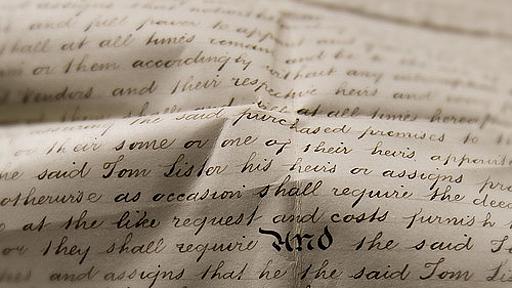 and full power to appoint and
shall at all times remain and be
or them accordingly without any
Vendors and their respective heirs and
shall at all times hereaf
the said purchased premises to the
or their some or one of their heirs appoin
he said Tom Lister his heirs or assigns pro
otherwise as occasion shall require the deed
at the like request and costs furnish
or they shall require And the said To
and assigns that he the said Tom Lis